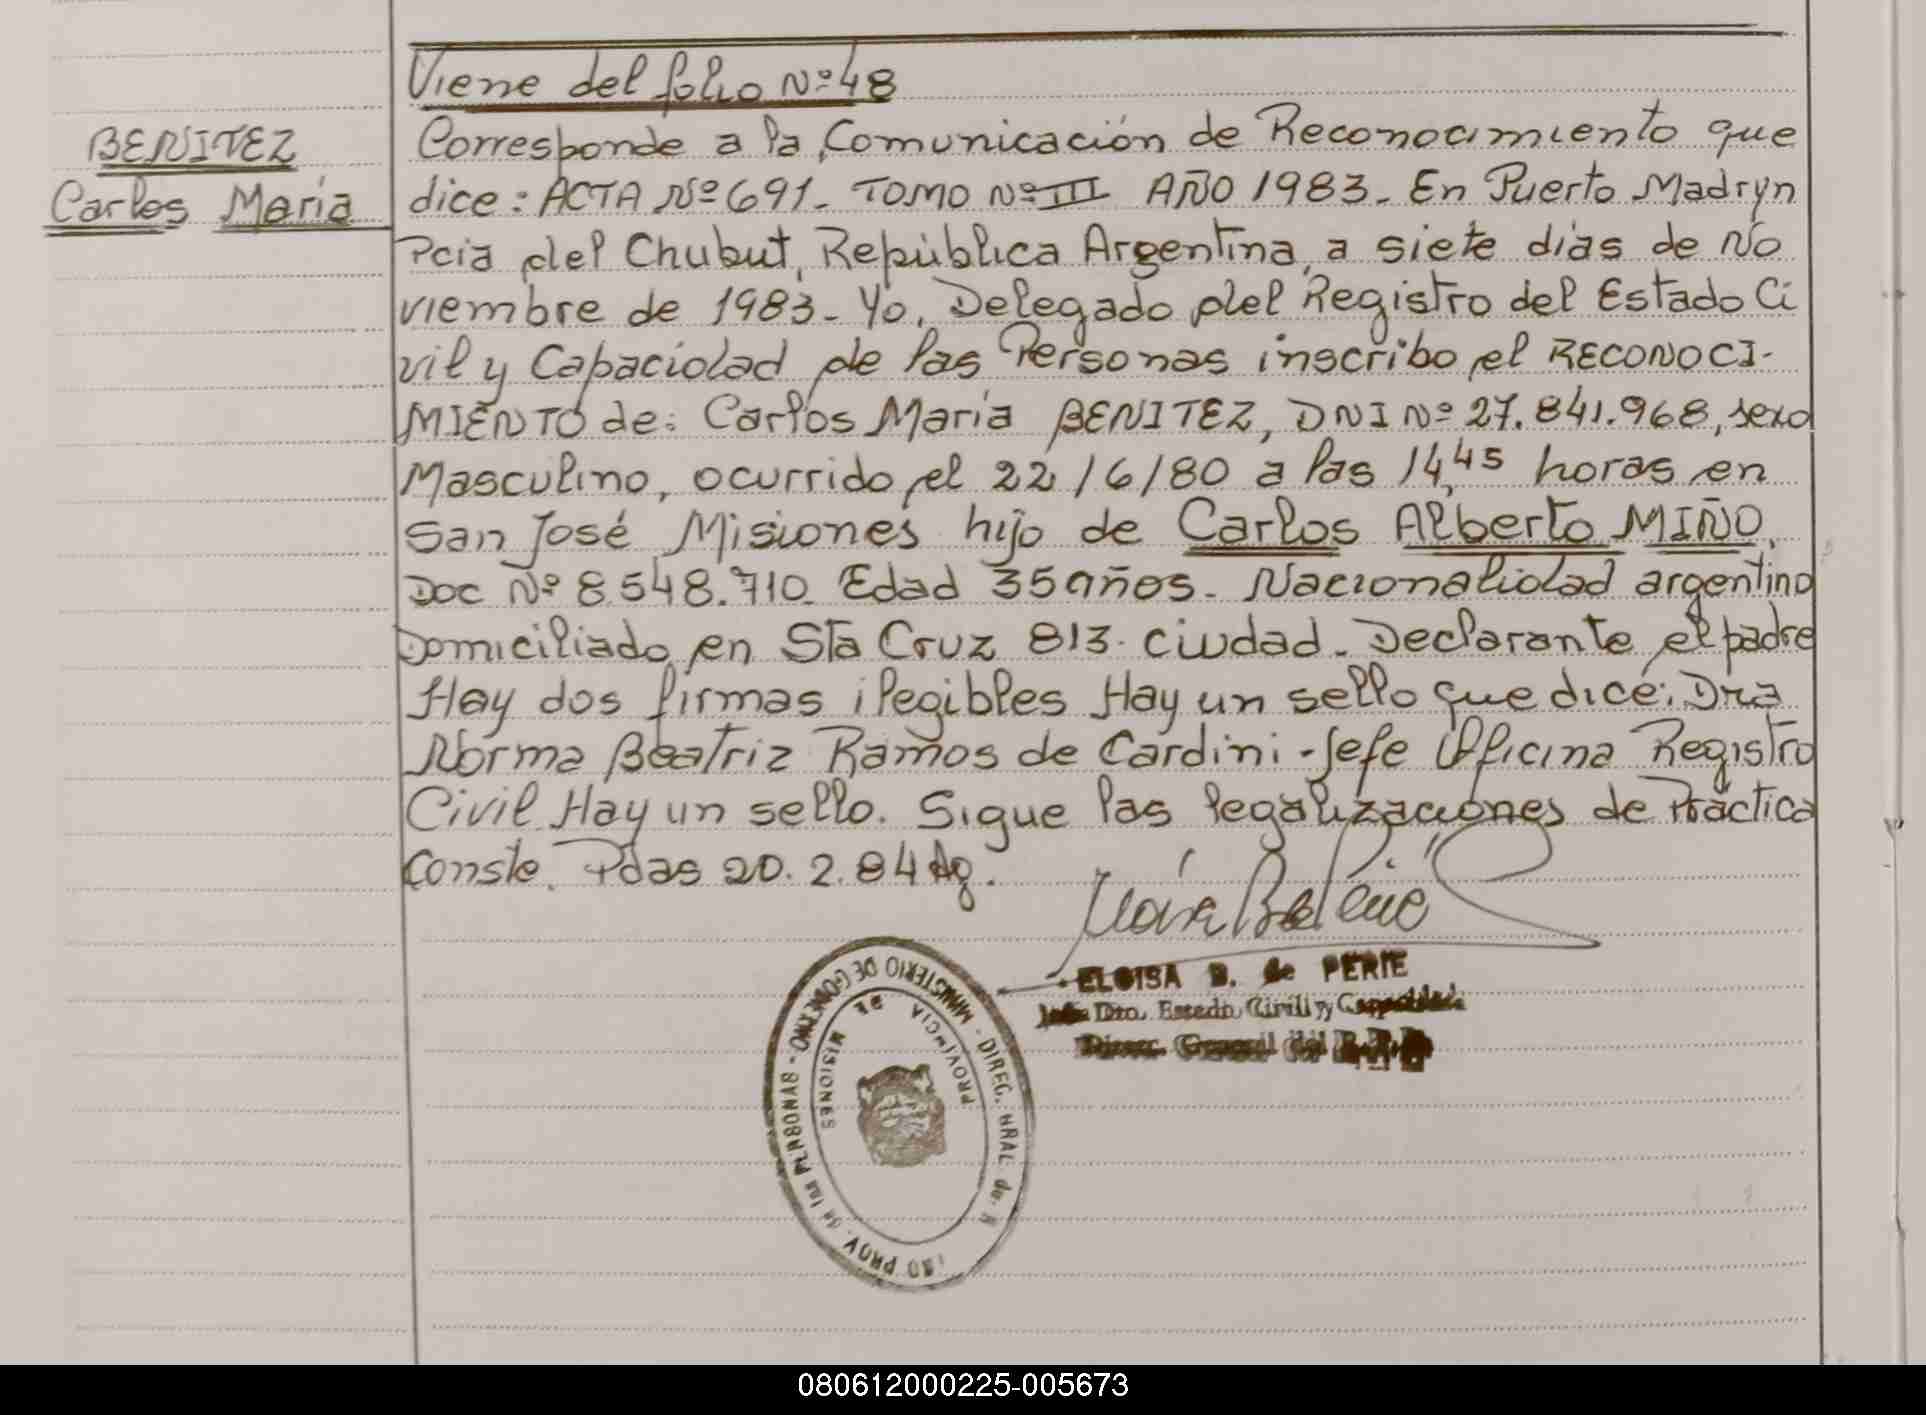 Viene del folio Nº 48
BENITEZ
Carlos María
Corresponde a la Comunicación de Reconocimiento que
dice: ACTA Nº 691. TOMO Nº III AÑO 1983. En Puerto Madryn
Pcia del Chubut, República Argentina, a siete días de No
viembre de 1983. Yo, Delegado del Registro del Estado Ci
vil y Capacidad de las Personas inscribo el RECONOCI-
MIENTO de: Carlos María BENITEZ, DNI Nº 27.841.968, sexo
Masculino, ocurrido el 22/6/80 a las 14,45 horas en
San José Misiones hijo de Carlos Alberto MIÑO,
Doc Nº 8.548.710. Edad 35 años. Nacionalidad argentino
Domiciliado en Sta Cruz 813. ciudad. Declarante el padre
Hay dos firmas ilegibles Hay un sello que dice: Dra
Norma Beatriz Ramos de Cardini - Jefe Oficina Registro
Civil. Hay un sello. Sigue las legalizaciones de Práctica
Conste. Pdas 20.2.84
ELOISA B. de PERIE
Jefe Dto. Estado Civil y Capacidad
Direc. General del
MINISTERIO DE GOBIERNO - DIREC. GRAL. de R PROV. de las PERSONAS
PROVINCIA DE MISIONES
080612000225-005673